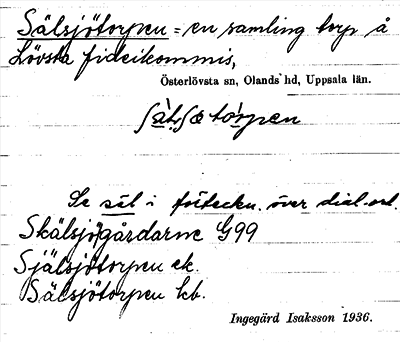 Sälsjötorpen = en samling torp å
Lövsta fideikommis,
Österlövsta sn, Olands hd, Uppsala län.
Se säl i förteckn. över dial.ord.
Skälsjögårdarne G99
Själsjötorpen ek.
Sälsjötorpen kb.
Ingegärd Isaksson 1936.